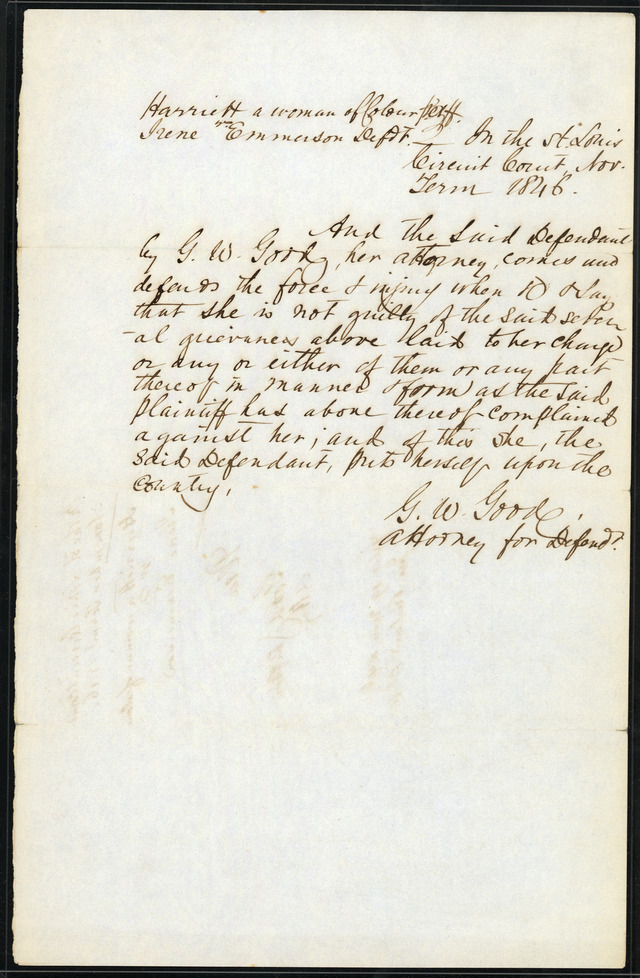 Harriett a woman of Colour Pltff.
Irene Emmerson Defdt. — In the St. Louis
Circuit Court, Nov.
Term 1846.
And the Said Defendant
by G. W. Goode, her attorney, comes and
defends the force & injury when &c & Says
that she is not guilty of the said sever
-al grievances above laid to her charge
or any or either of them or any part
thereof in manner & form as the said
Plaintiff has above thereof complained
against her; and of this she, the
said Defendant, puts herself upon the
Country,
G. W. Goode,
Attorney for Defendt.